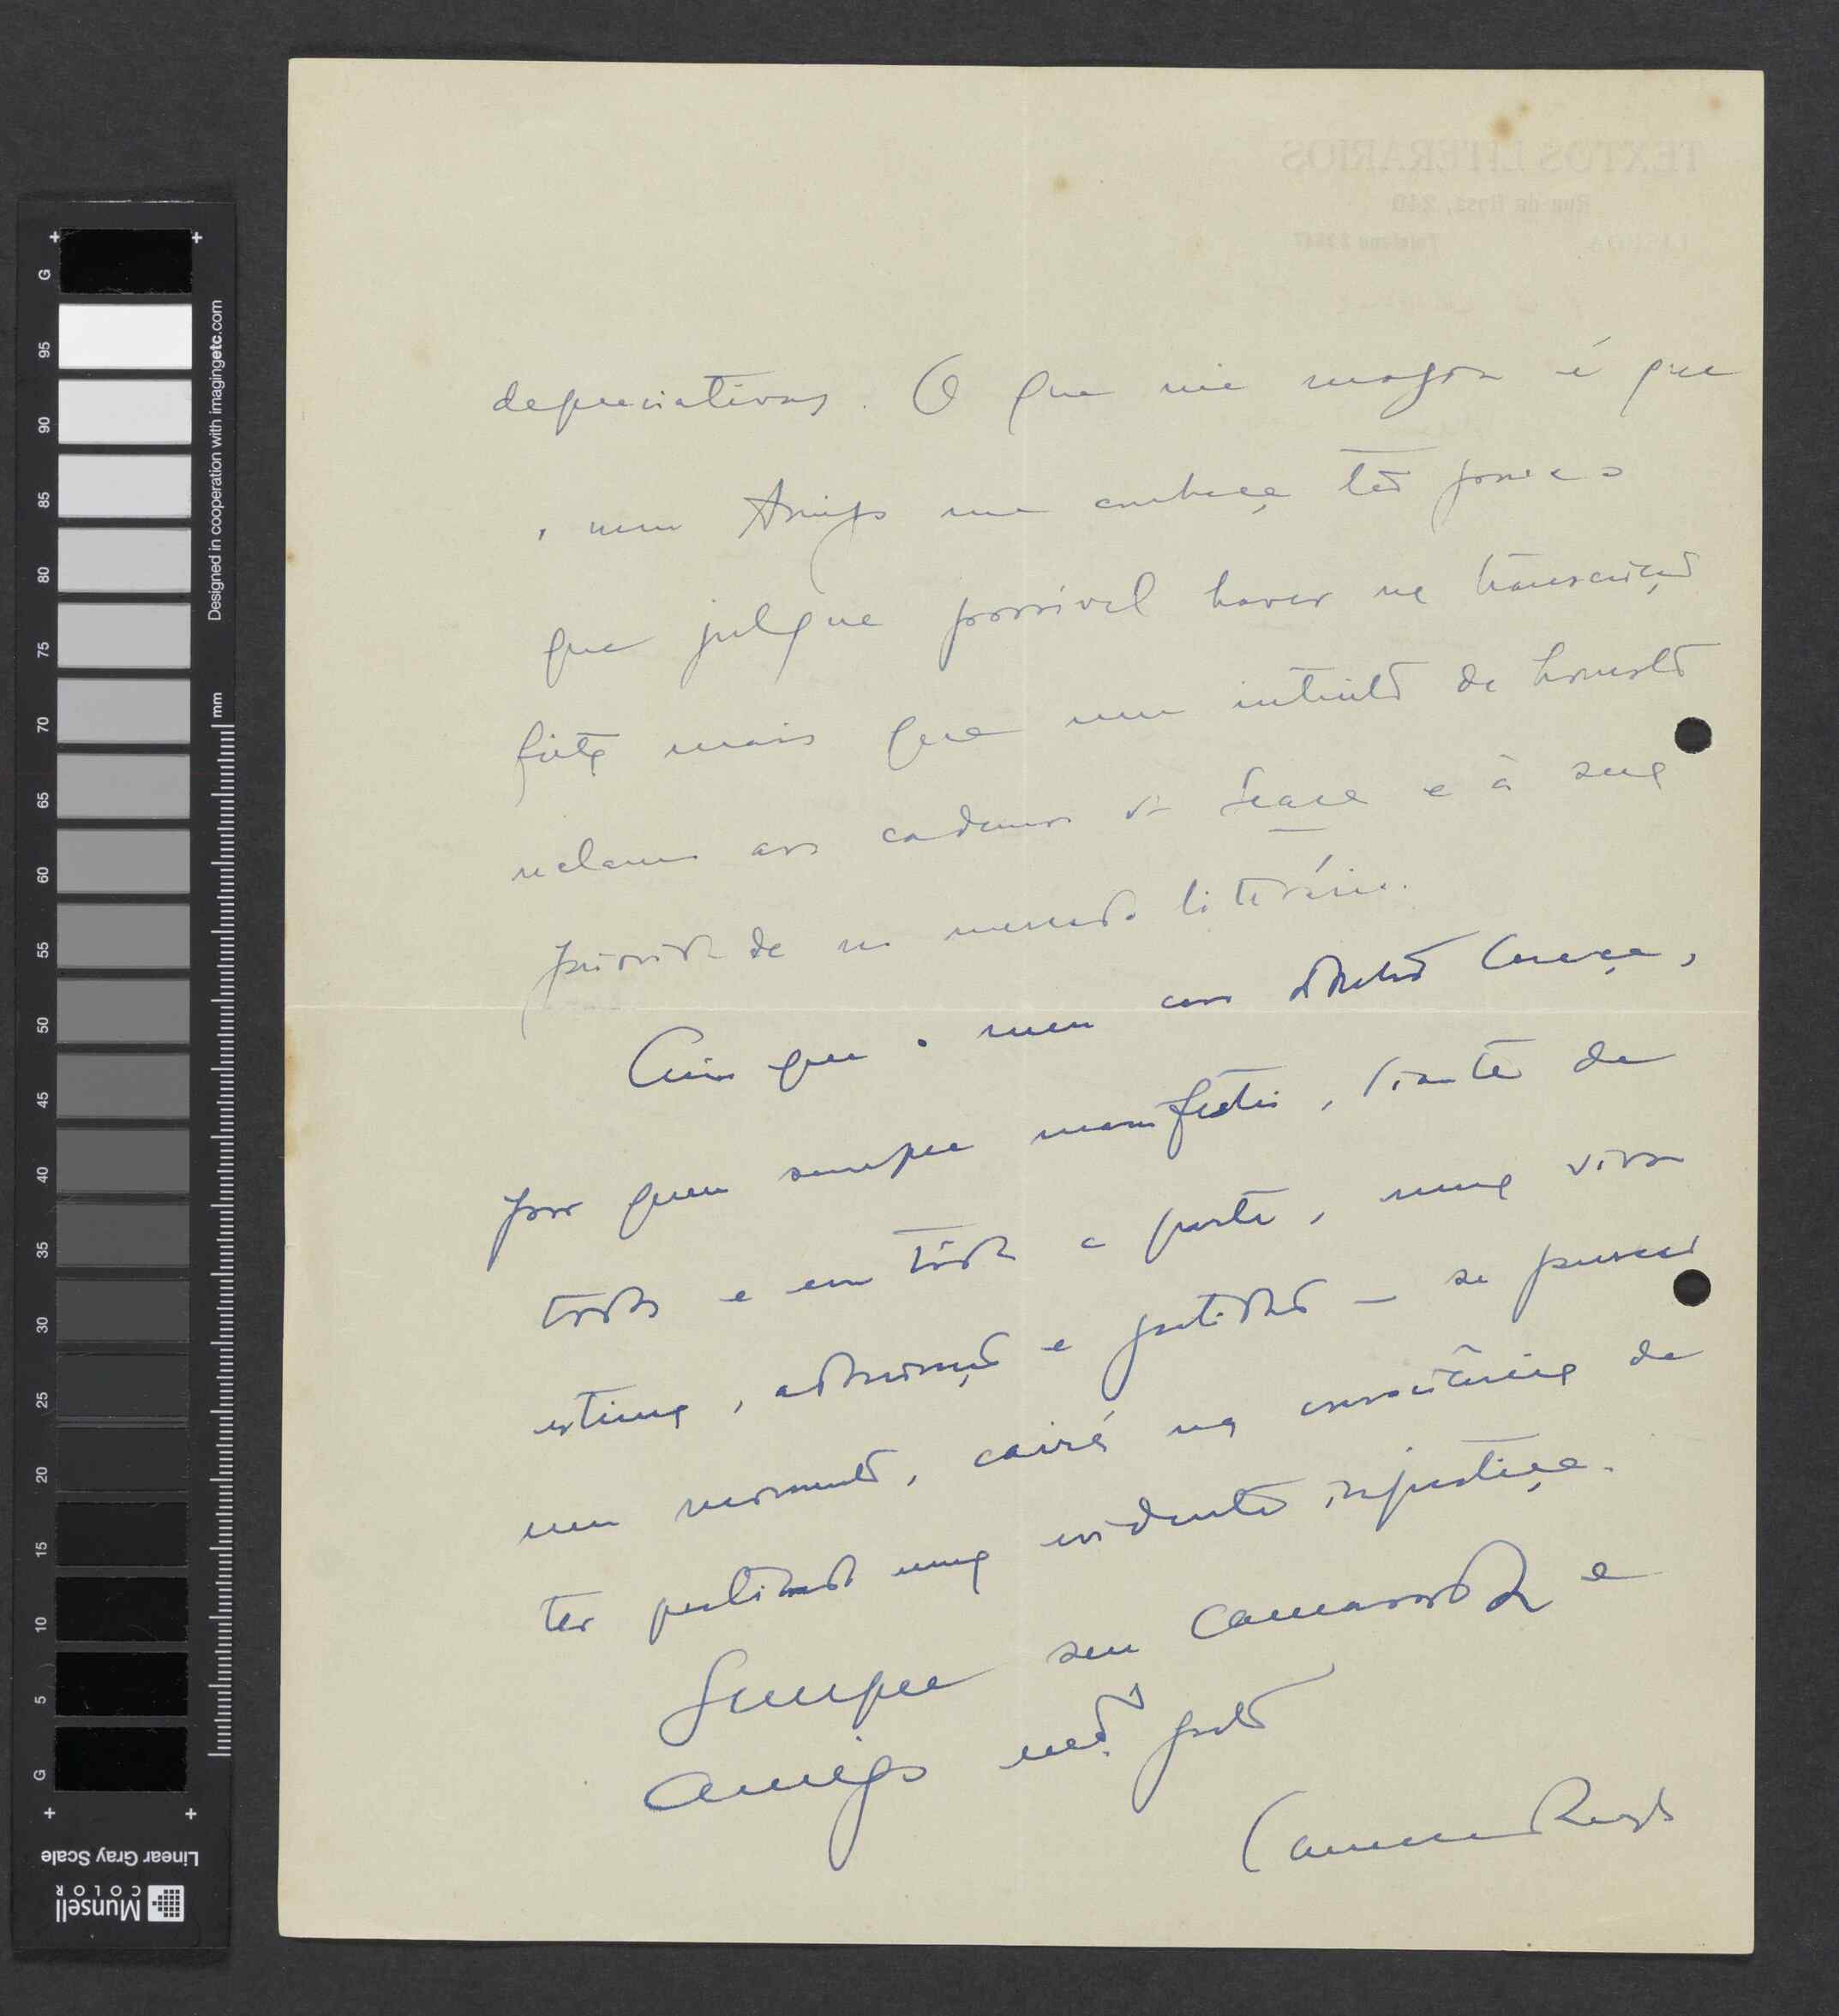 depreciativos. O que me magoa é que
o meu Amigo me conheça tão pouco
que julgue possível haver na transcrição
feita mais que um intuito de honesto
reclamo aos cadernos da Seara e à sua
prioridade no mercado literário.
Creio que o meu caro António Caraça,
por quem sempre manifestei, diante de
todos e em tôda a parte, uma viva
estima, admiração e gratidão — se pensar
um momento, cairá na consciência de
ter praticado uma evidente injustiça.
Sempre seu camarada e
amigo mt.º grato
TEXTOS LITERÁRIOS
Rua da Rosa, 240
LISBOA Telefone
G 95 90 85 80 75 70 65 60 55 50 45 40 35 30 25 20 15 10 5 G
Designed in cooperation with imagingetc.com
mm
Linear Gray Scale
Munsell
COLOR